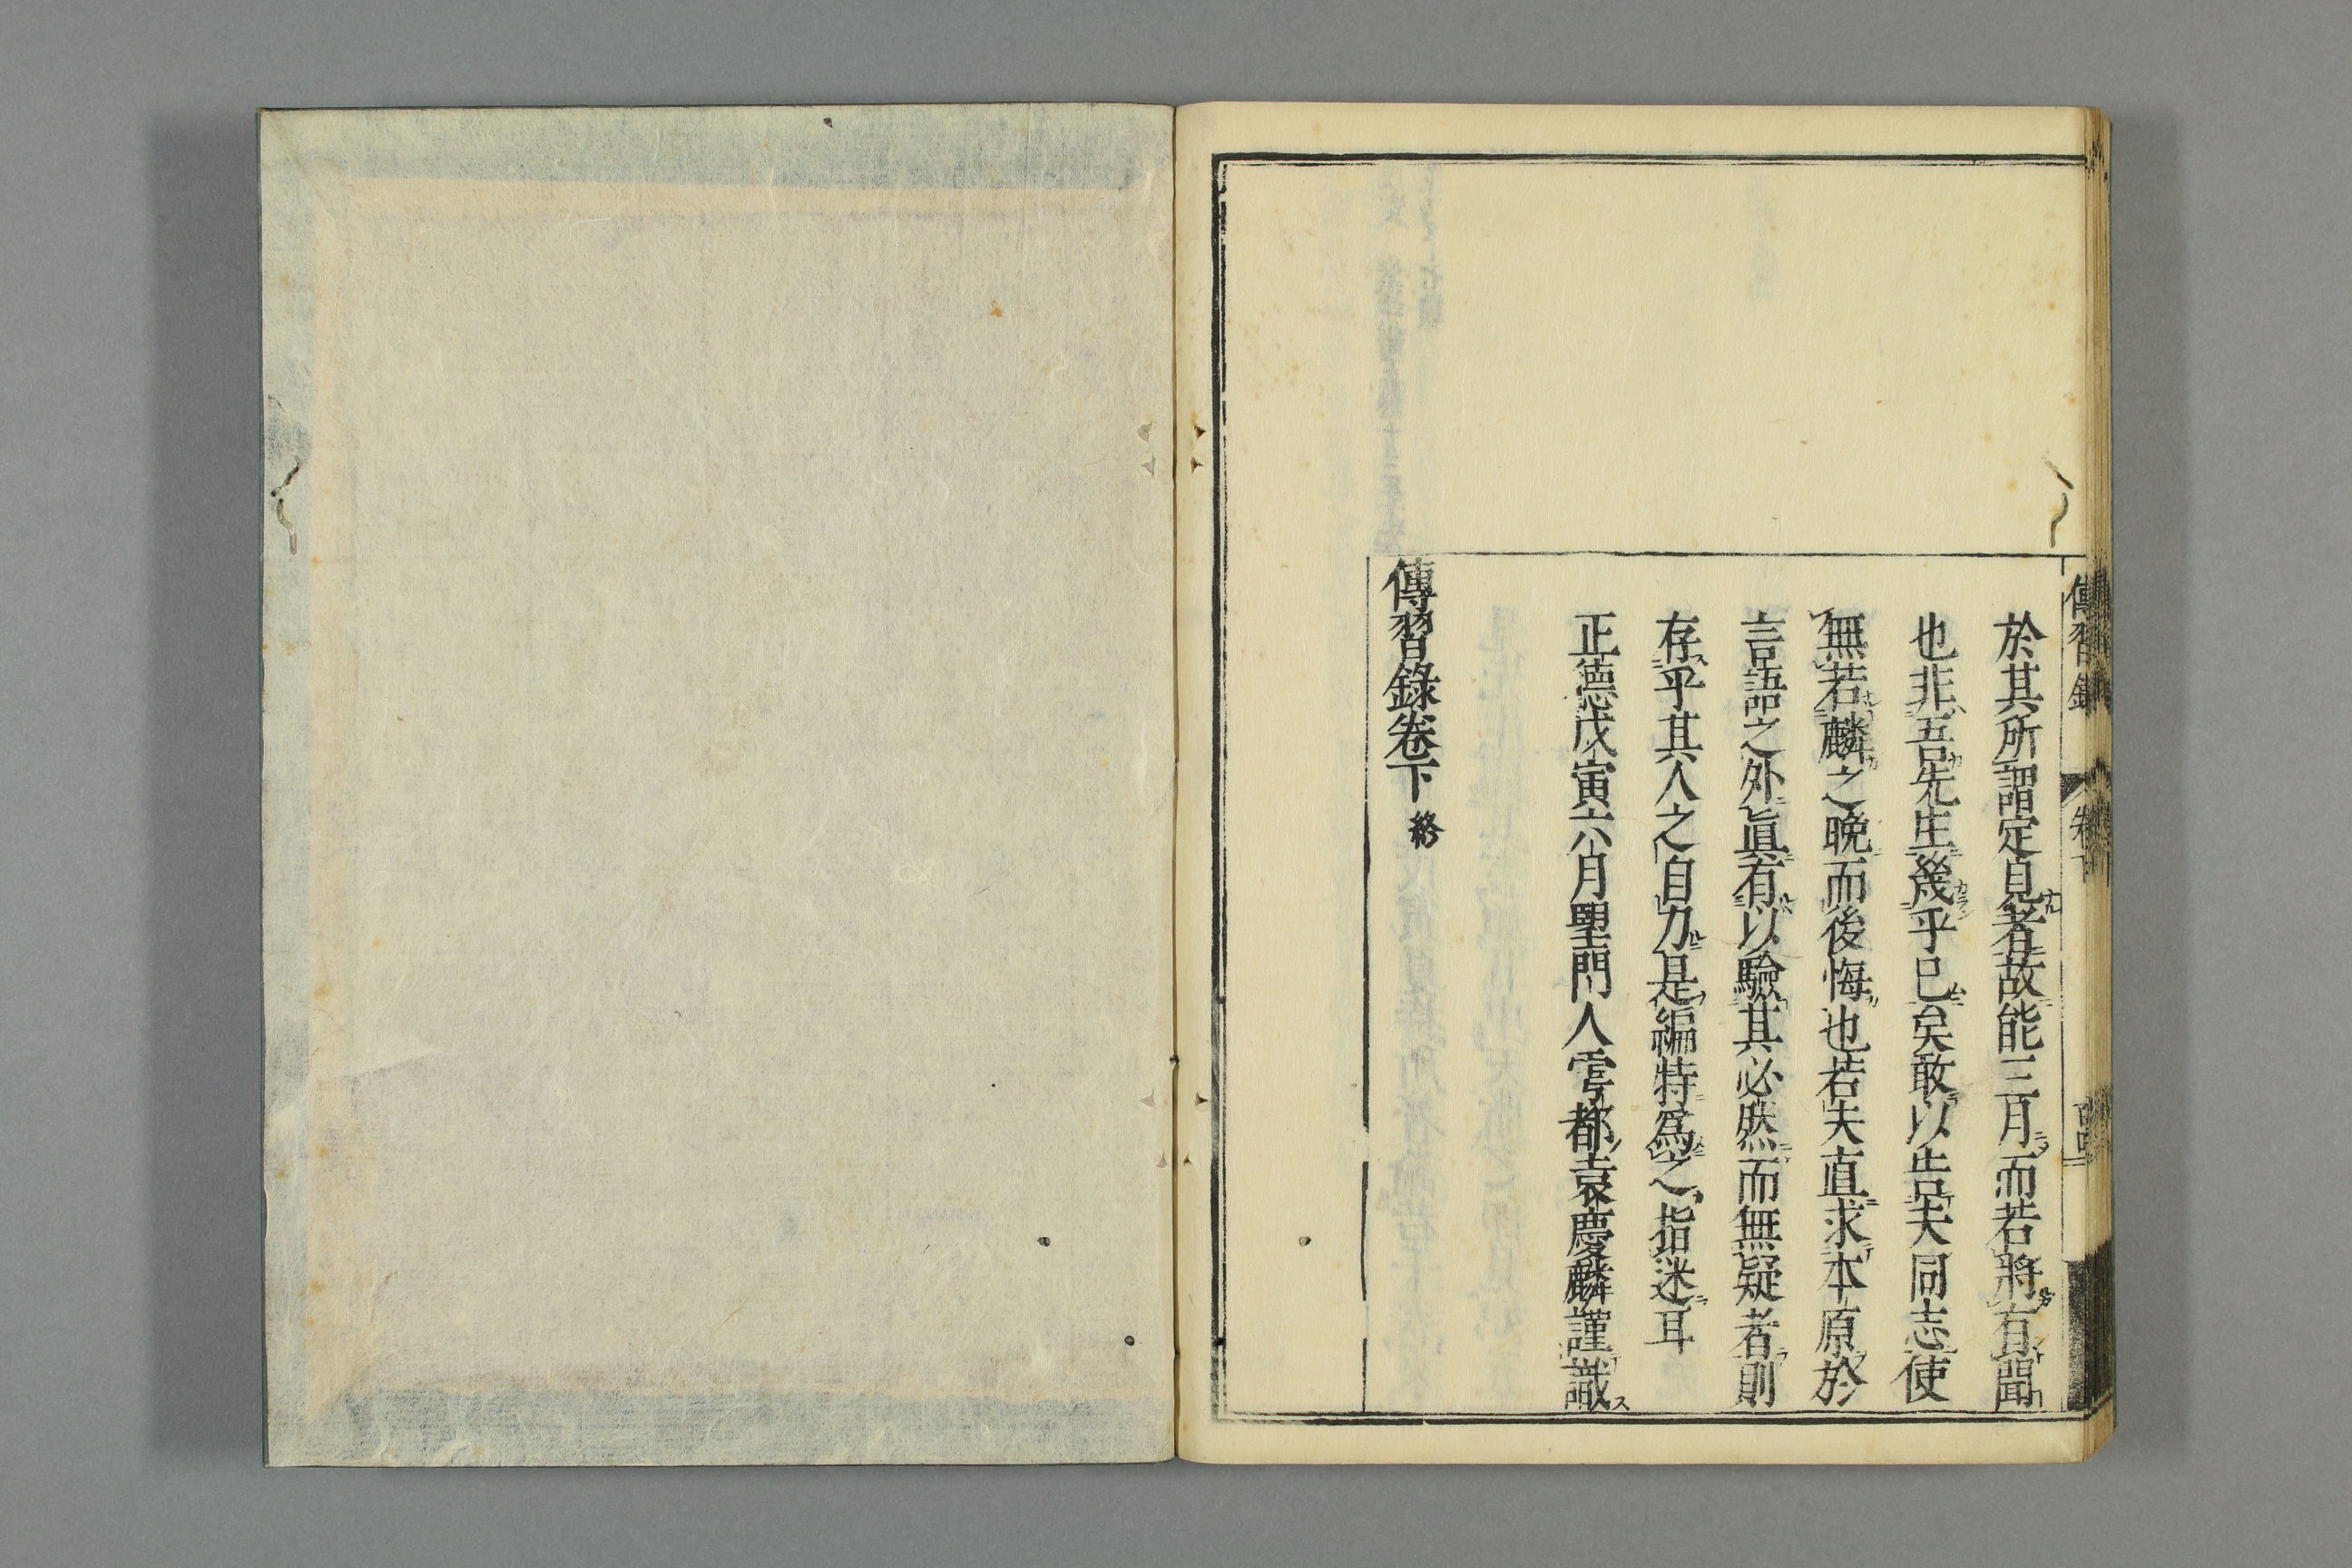 於其所謂定見者故能三月而若將有聞
也非吾先生幾乎已矣敢以告夫同志使
無若麟之晚而後悔也若夫直求本原於
言語之外眞有以驗其必然而無疑者則
存乎其人之自力是編特爲之指迷耳
正德戊寅六月望門人雩都袁慶麟謹識
傳習錄卷下 終